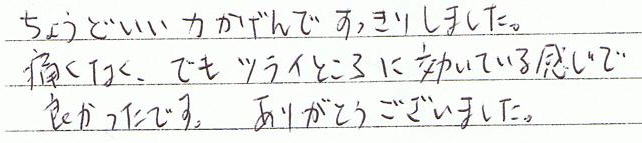 ちょうどいい力かげんですっきりしました。
痛くなく、でもツライところに効いている感じで
良かったです。 ありがとうございました。